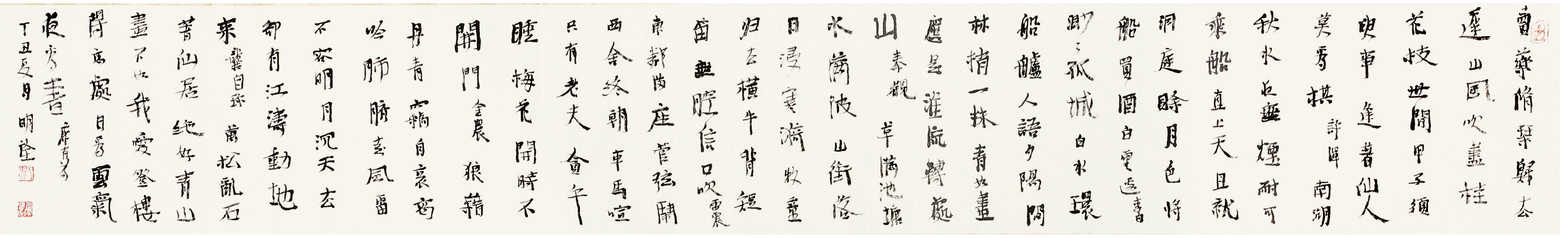 賣藥脩琴歸去
遲山風吹盡桂
花枝世間甲子須
臾事逢著仙人
莫看棋 許渾 南湖
秋水夜無煙耐可
乘船直上天且就
洞庭賒月色將
船買酒白雲邊 李白
渺渺孤城白水環
船艫人語夕陽間
林梢一抹青如畫
應是淮流轉處
山 秦觀 草滿池塘
水滿陂山銜落
日浸寒漪牧童
歸去橫牛背短
笛無腔信口吹 雷震
東鄰滿座管弦鬧
西舍終朝車馬喧
只有老夫貪午
睡梅花開時不
開門 金農 狼藉
丹青竊自哀高
吟肺腑走風雷
不容明月沉天去
卻有江濤動地
來 龔自珍 萬松亂石
著仙居絕好青山
畫不如我愛登樓
高處日看雲氣
夜
丁丑夏月 明詮